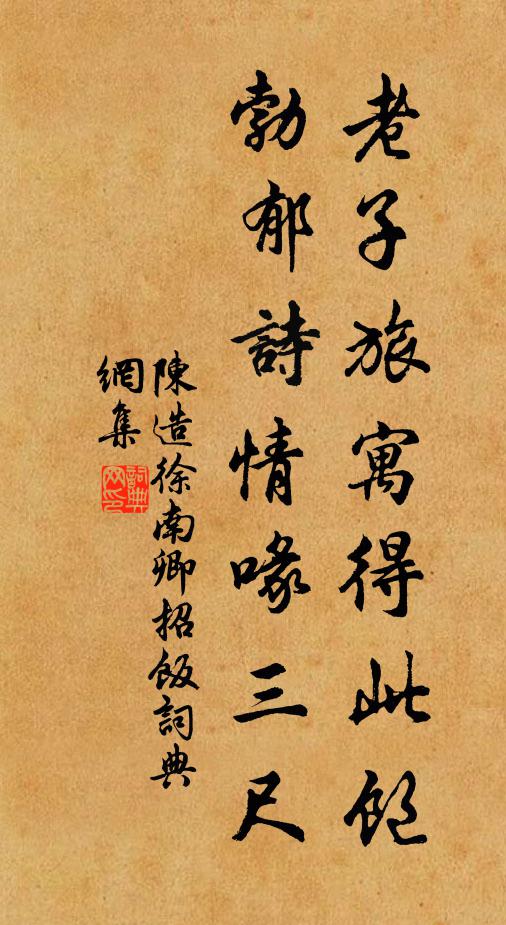 老子旅寓得此飽
勃郁詩情喙三尺
陳造徐南卿招飯詞典
網集
詞典網印